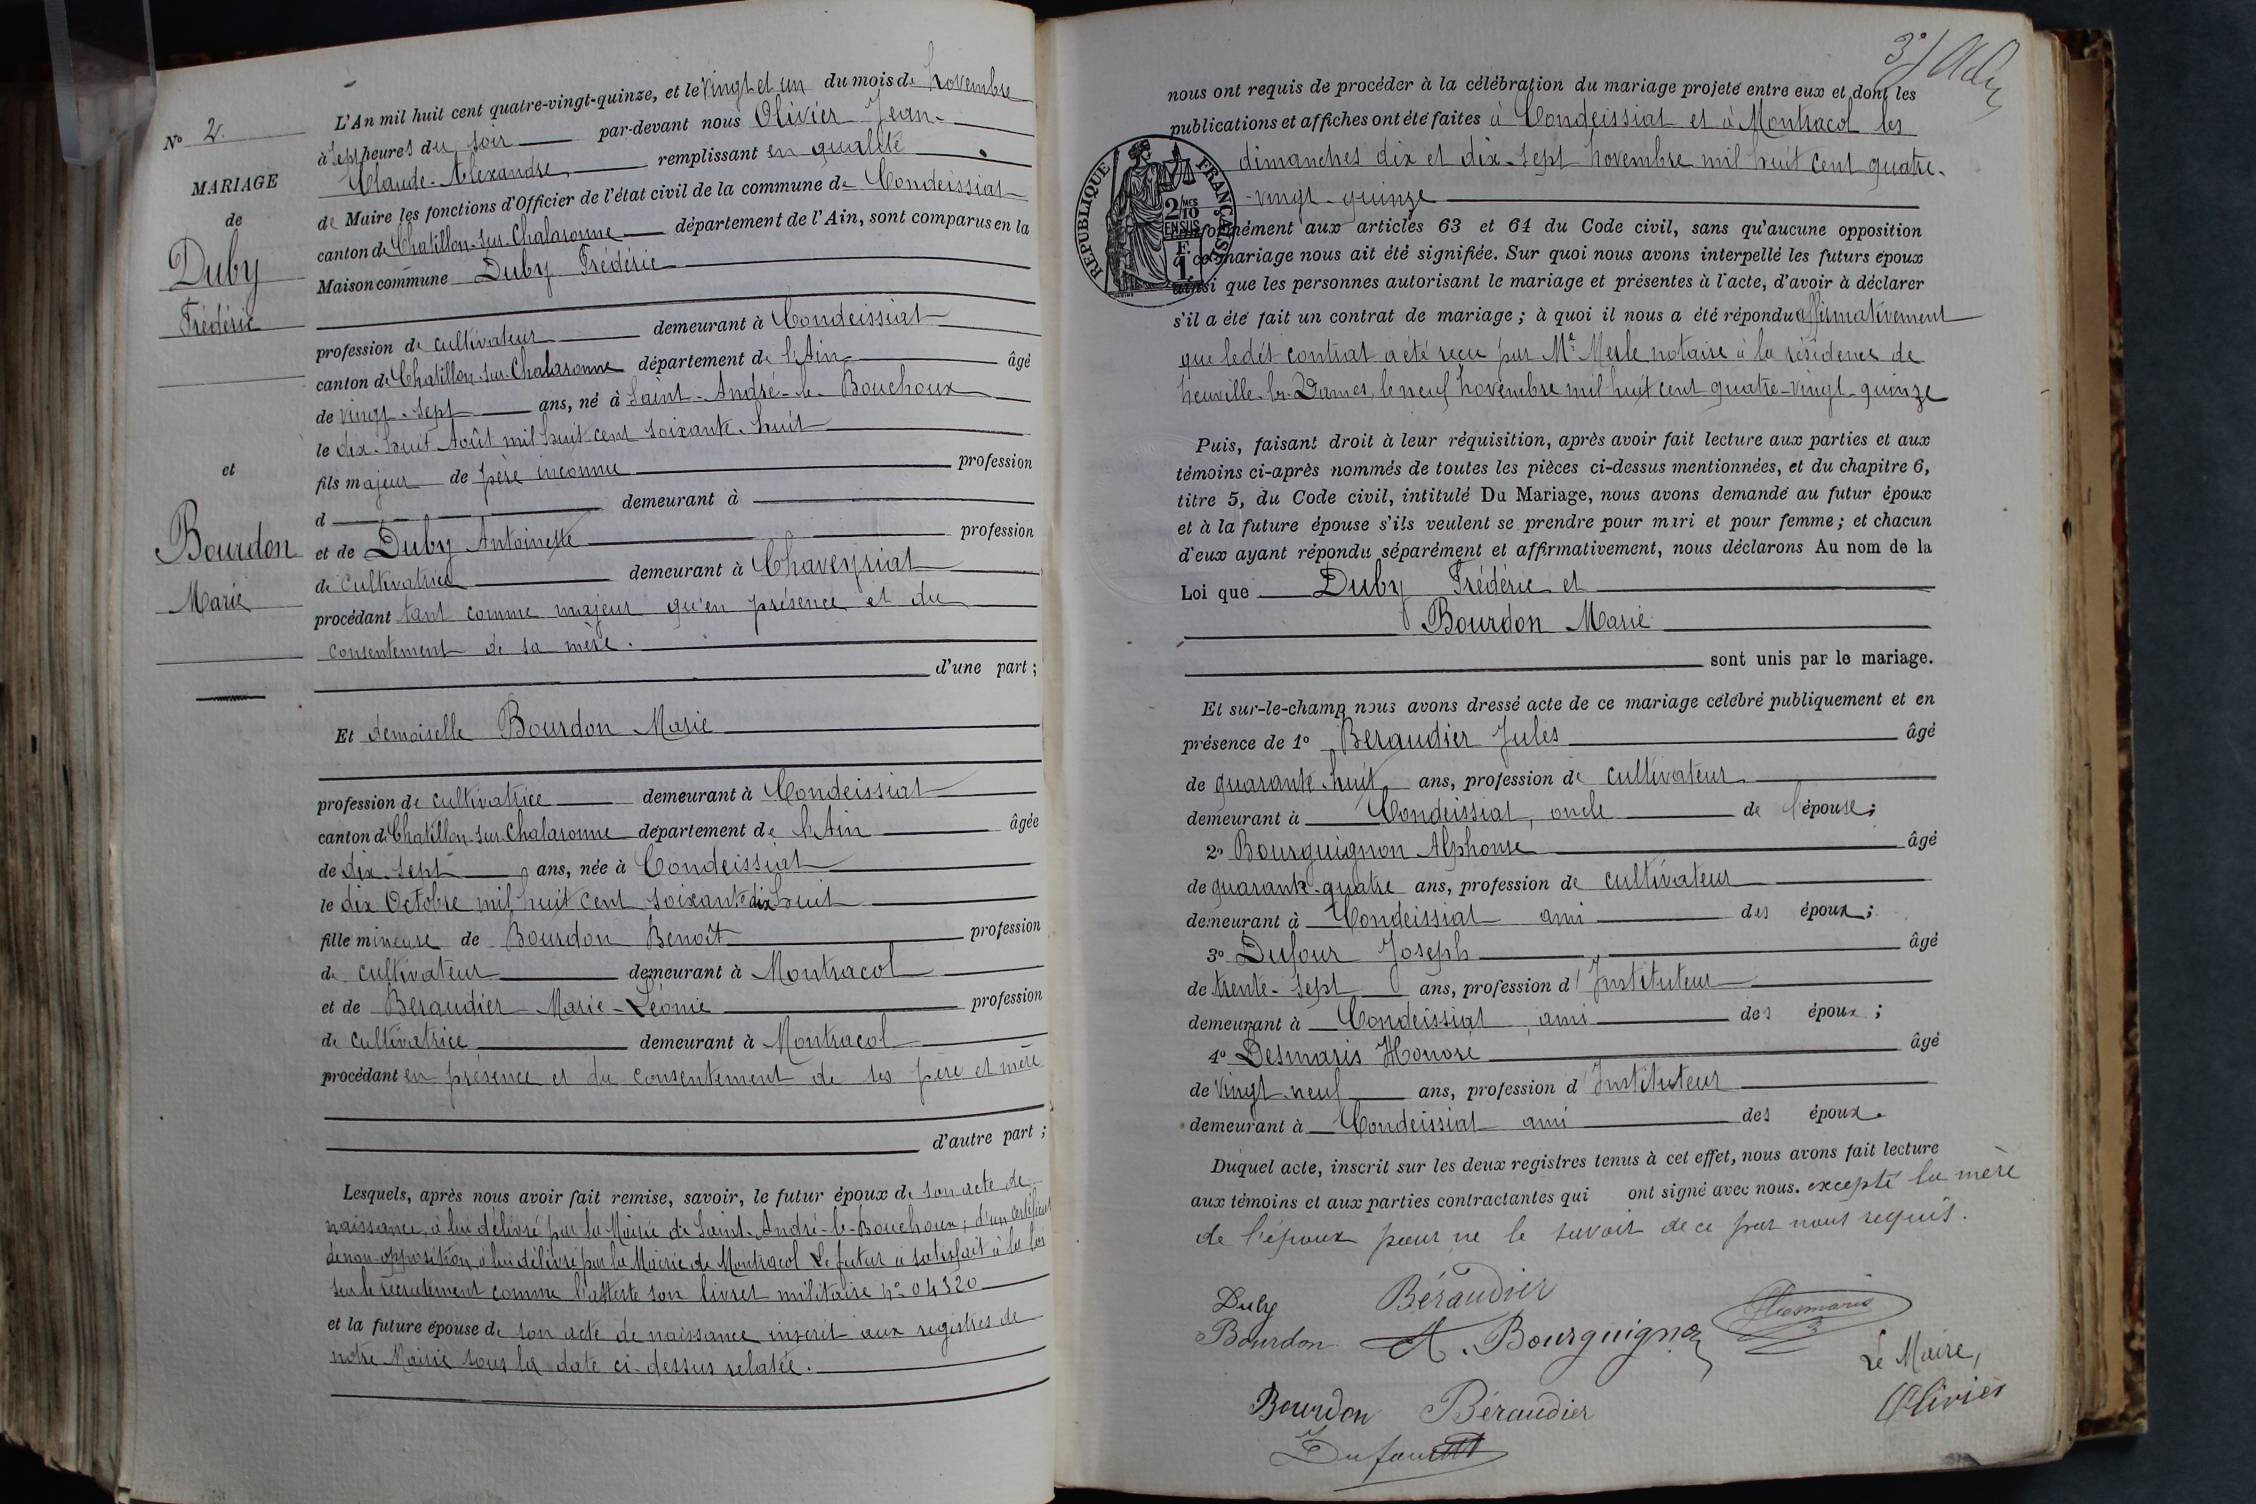 L'An mil huit cent quatre-vingt-quinze, et le vingt et un du mois de Novembre
à sept heures du soir par-devant nous Olivier Jean-
Claude-Alexandre, remplissant en qualité
de Maire les fonctions d'Officier de l'état civil de la commune de Condeissiat
canton de Chatillon-sur-Chalaronne département de l'Ain, sont comparus en la
Maison commune Duby Frédéric
profession de cultivateur demeurant à Condeissiat
canton de Chatillon-sur-Chalaronne département de l'Ain âgé
de vingt-sept ans, né à Saint-André-le-Bouchoux
le dix-huit Août mil huit cent soixante-huit
fils majeur de père inconnu profession
d demeurant à
et de Duby Antoinette profession
de cultivatrice demeurant à Chaveyriat
procédant tant comme majeur qu'en présence et du
consentement de sa mère.
d'une part ;
Et demoiselle Bourdon Marie
profession de cultivatrice demeurant à Condeissiat
canton de Chatillon-sur-Chalaronne département de l'Ain âgée
de dix-sept ans, née à Condeissiat
le dix Octobre mil huit cent soixante dix huit
fille mineure de Bourdon Benoît profession
de cultivateur demeurant à Montracol
et de Beraudier Marie-Léonie profession
de cultivatrice demeurant à Montracol
procédant en présence et du consentement de ses père et mère
d'autre part ;
Lesquels, après nous avoir fait remise, savoir, le futur époux de son acte de
naissance, à lui délivré par la Mairie de Saint-André-le-Bouchoux, d'un certificat
de non-opposition à lui délivré par la Mairie de Montracol Le futur a satisfait à la loi
sur le recrutement comme l'atteste son livret militaire N° 04320
et la future épouse de son acte de naissance inscrit aux registres de
notre Mairie sous la date ci-dessus relatée.
N° 2
MARIAGE
de
Duby
Frédéric
et
Bourdon
Marie
3°/
nous ont requis de procéder à la célébration du mariage projeté entre eux et dont les
publications et affiches ont été faites à Condeissiat et à Montracol les
dimanches dix et dix-sept Novembre mil huit cent quatre-
-vingt-quinze
RÉPUBLIQUE FRANÇAISE
2/10 MES
EN SUS
F.
1
conformément aux articles 63 et 64 du Code civil, sans qu'aucune opposition
à ce mariage nous ait été signifiée. Sur quoi nous avons interpellé les futurs époux
ainsi que les personnes autorisant le mariage et présentes à l'acte, d'avoir à déclarer
s'il a été fait un contrat de mariage ; à quoi il nous a été répondu affirmativement
que ledit contrat a été reçu par Me Merle notaire à la résidence de
Neuville-les-Dames, le neuf Novembre mil huit cent quatre-vingt-quinze
Puis, faisant droit à leur réquisition, après avoir fait lecture aux parties et aux
témoins ci-après nommés de toutes les pièces ci-dessus mentionnées, et du chapitre 6,
titre 5, du Code civil, intitulé Du Mariage, nous avons demandé au futur époux
et à la future épouse s'ils veulent se prendre pour mari et pour femme ; et chacun
d'eux ayant répondu séparément et affirmativement, nous déclarons Au nom de la
Loi que Duby Frédéric et
Bourdon Marie
sont unis par le mariage.
Et sur-le-champ nous avons dressé acte de ce mariage célébré publiquement et en
présence de 1° Beraudier Jules âgé
de quarante-huit ans, profession de cultivateur
demeurant à Condeissiat, oncle de l'épouse ;
2° Bourguignon Alphonse âgé
de quarante-quatre ans, profession de cultivateur
demeurant à Condeissiat ami des époux ;
3° Dufour Joseph âgé
de trente-sept ans, profession d'Instituteur
demeurant à Condeissiat ami des époux ;
4° Desmaris Honoré âgé
de vingt-neuf ans, profession d'Instituteur
demeurant à Condeissiat ami des époux.
Duquel acte, inscrit sur les deux registres tenus à cet effet, nous avons fait lecture
aux témoins et aux parties contractantes qui ont signé avec nous. excepté la mère
de l'époux pour ne le savoir de ce par nous requis.
Duby Béraudier
Bourdon A. Bourguignon Hesmaris
Le Maire,
Bourdon Béraudier Olivier
Dufour